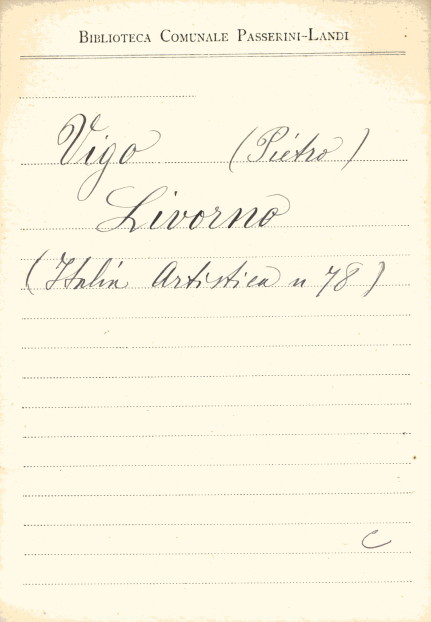 Biblioteca Comunale Passerini-Landi
Vigo (Piétro)
Livorno
(Italia Artistica n 78)
C